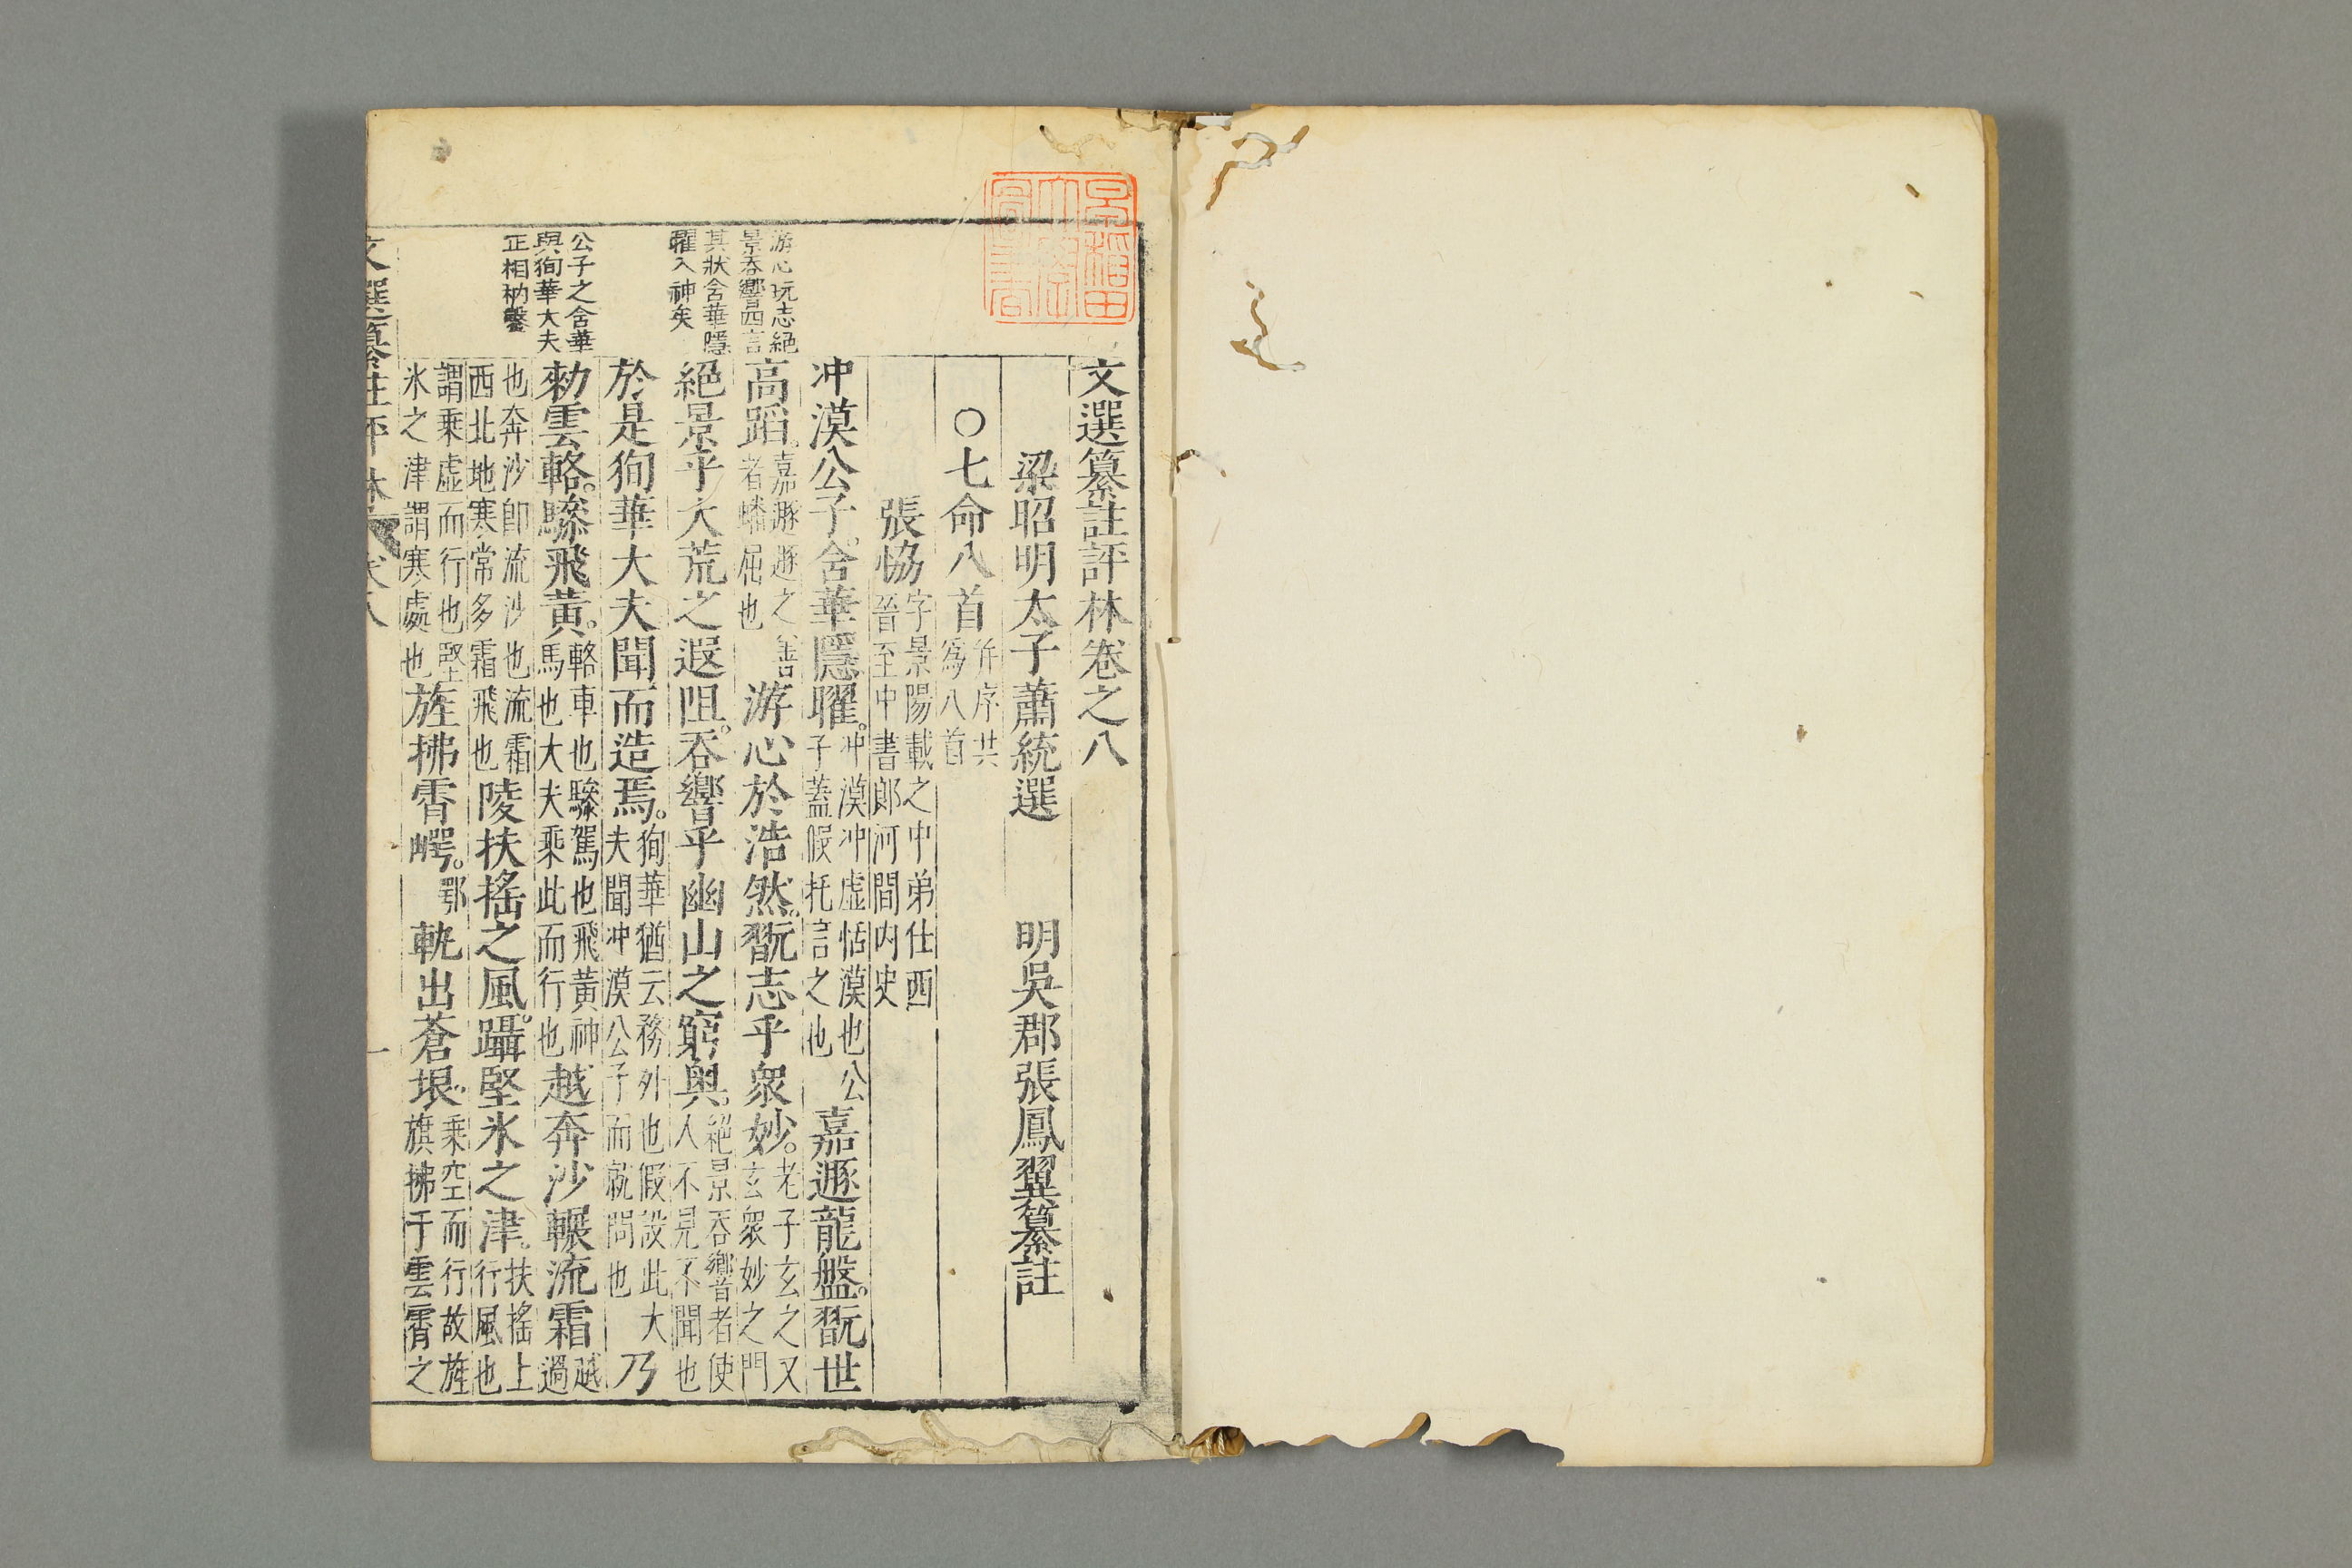 早稲田
大學圖
書
文選纂註評林卷之八
梁昭明太子蕭統選 明吳郡張鳳翼纂註
○七命八首 并序共爲八首
張協 字景陽載之中弟仕西晉至中書郎河間内史
冲漠公子。含華隱曜。 冲漠冲虛恬漠也公子蓋假托言之也 嘉遯龍盤。翫世
高蹈。 嘉遯遯之善者蟠屈也 游心於浩然。翫志乎衆妙。 老子玄之又玄衆妙之門
絕景乎大荒之遐阻。吞響乎幽山之窮奧。 絕景吞響者使人不見不聞也
於是徇華大夫聞而造焉。 徇華猶云務外也假設此大夫聞冲漠公子而就問也 乃
勑雲輅。驂飛黃。 輅車也驂駕也飛黃神馬也大夫乘此而行也 越奔沙輾流霜 越過
也奔沙卽流沙也流霜西北地寒常多霜飛也 陵扶搖之風。躡堅氷之津。 扶搖上行風也
謂乘虛而行也堅氷之津謂寒處也 旌拂霄崿。 鄂 軌出蒼垠。 乘空而行故旌旗拂于雲霄之
游心玩志絕
景吞響四言
其狀含華隱
曜入神矣
公子之含華
與徇華大夫
正相枘鑿
文選纂註評林 卷八 一